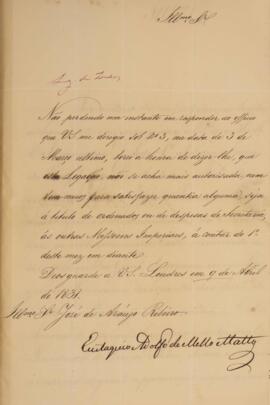 Illmo. Sr.
Não perdendo um instante em responder ao officio
que VS. me derigio sob No 3, na data de 3 de
Março ultimo, tenho a honra de dizer-lhe, que
esta Legação não se acha mais autorisada, nem
tem meios para satisfazer quantia alguma, seja
á titulo de ordenados ou de despezas de Secretaria,
ás outras Missoens Imperiaes, á contar do 1o.
deste mez em diante.
Deos guarde a VS. Londres em 9 de Abril
de 1831.
Illmo. Sr. José de Araujo Ribeiro
Eustaquio Adolfo de Mello Mattos